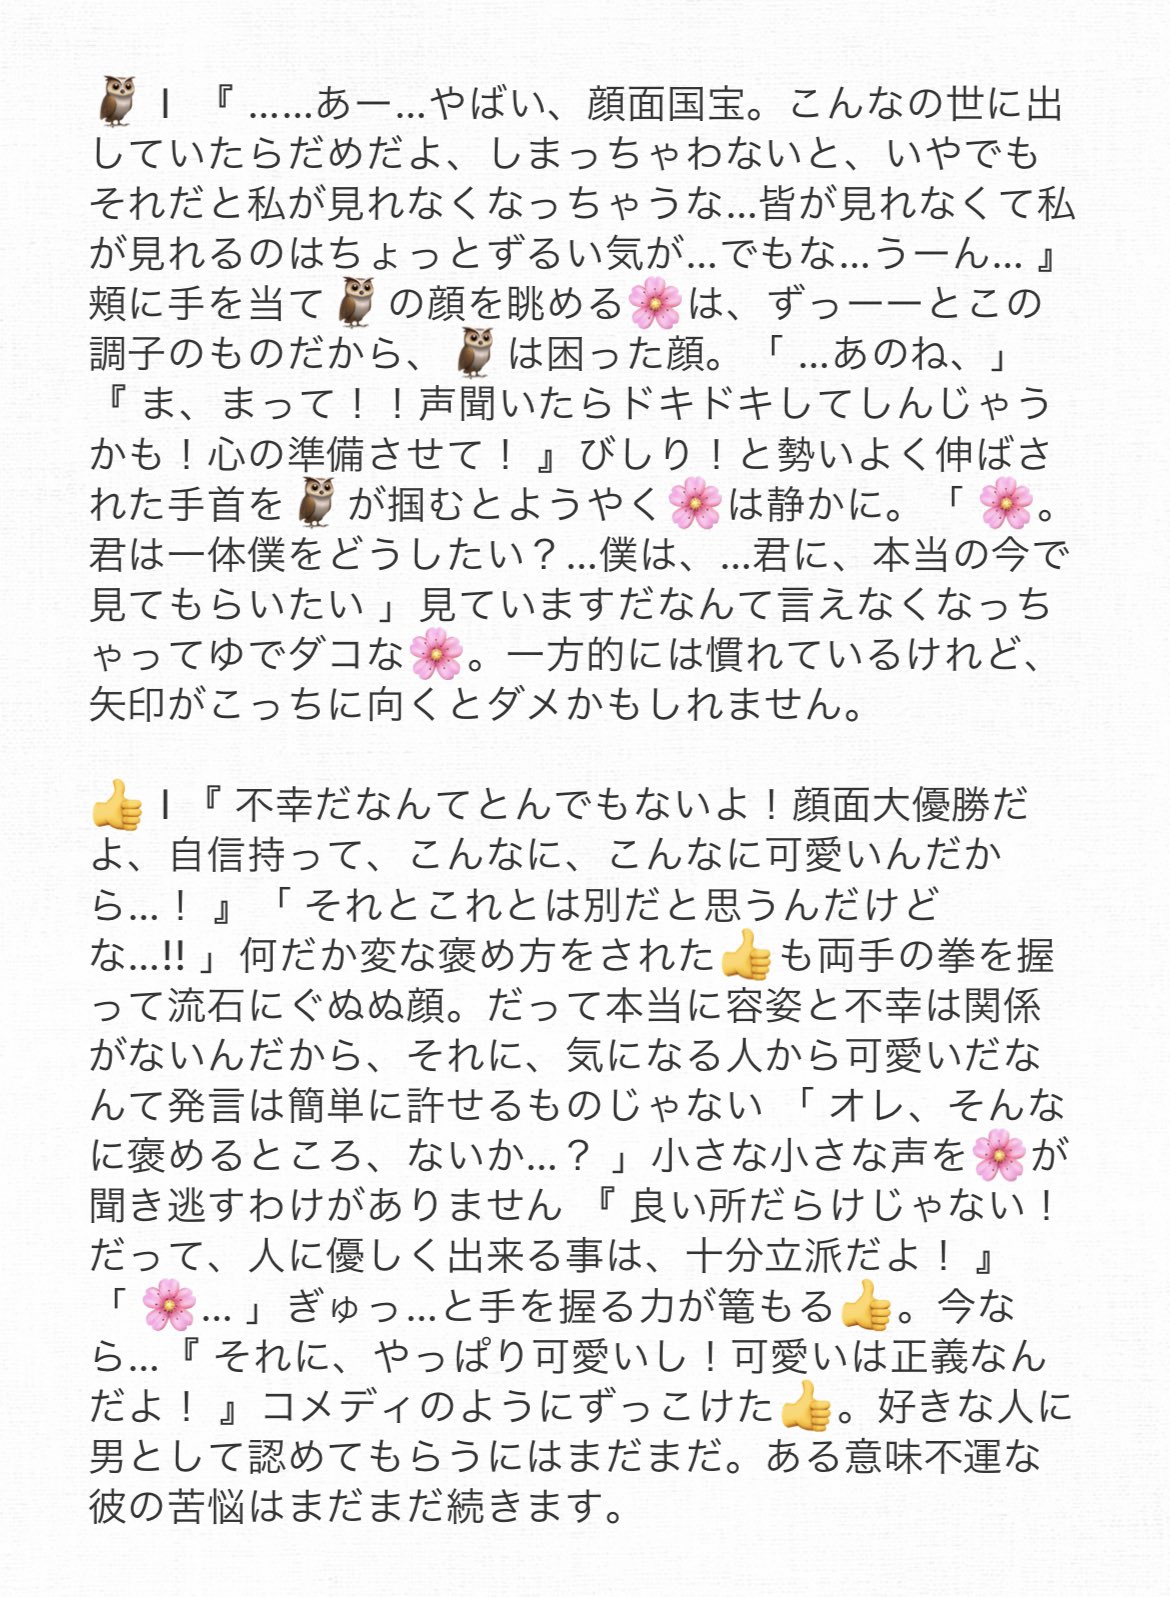 🦉 I 『 ......あー...やばい、顔面国宝。こんなの世に出
していたらだめだよ、しまっちゃわないと、いやでも
それだと私が見れなくなっちゃうな...皆が見れなくて私
が見れるのはちょっとずるい気が...でもな...うーん... 』
頬に手を当て🦉の顔を眺める🌸は、ずっーーとこの
調子のものだから、🦉は困った顔。「 ...あのね、」
『 ま、まって！！声聞いたらドキドキしてしんじゃう
かも！心の準備させて！ 』びしり！と勢いよく伸ばさ
れた手首を🦉が掴むとようやく🌸は静かに。「 🌸。
君は一体僕をどうしたい？...僕は、...君に、本当の今で
見てもらいたい 」見ていますだなんて言えなくなっち
ゃってゆでダコな🌸。一方的には慣れているけれど、
矢印がこっちに向くとダメかもしれません。

👍 I 『 不幸だなんてとんでもないよ！顔面大優勝だ
よ、自信持って、こんなに、こんなに可愛いんだか
ら...！ 』「 それとこれとは別だと思うんだけど
な...!! 」何だか変な褒め方をされた👍も両手の拳を握
って流石にぐぬぬ顔。だって本当に容姿と不幸は関係
がないんだから、それに、気になる人から可愛いだな
んて発言は簡単に許せるものじゃない 「 オレ、そんな
に褒めるところ、ないか...？ 」小さな小さな声を🌸が
聞き逃すわけがありません 『 良い所だらけじゃない！
だって、人に優しく出来る事は、十分立派だよ！ 』
「 🌸... 」ぎゅっ...と手を握る力が篭もる👍。今な
ら...『 それに、やっぱり可愛いし！可愛いは正義なん
だよ！ 』コメディのようにずっこけた👍。好きな人に
男として認めてもらうにはまだまだ。ある意味不運な
彼の苦悩はまだまだ続きます。